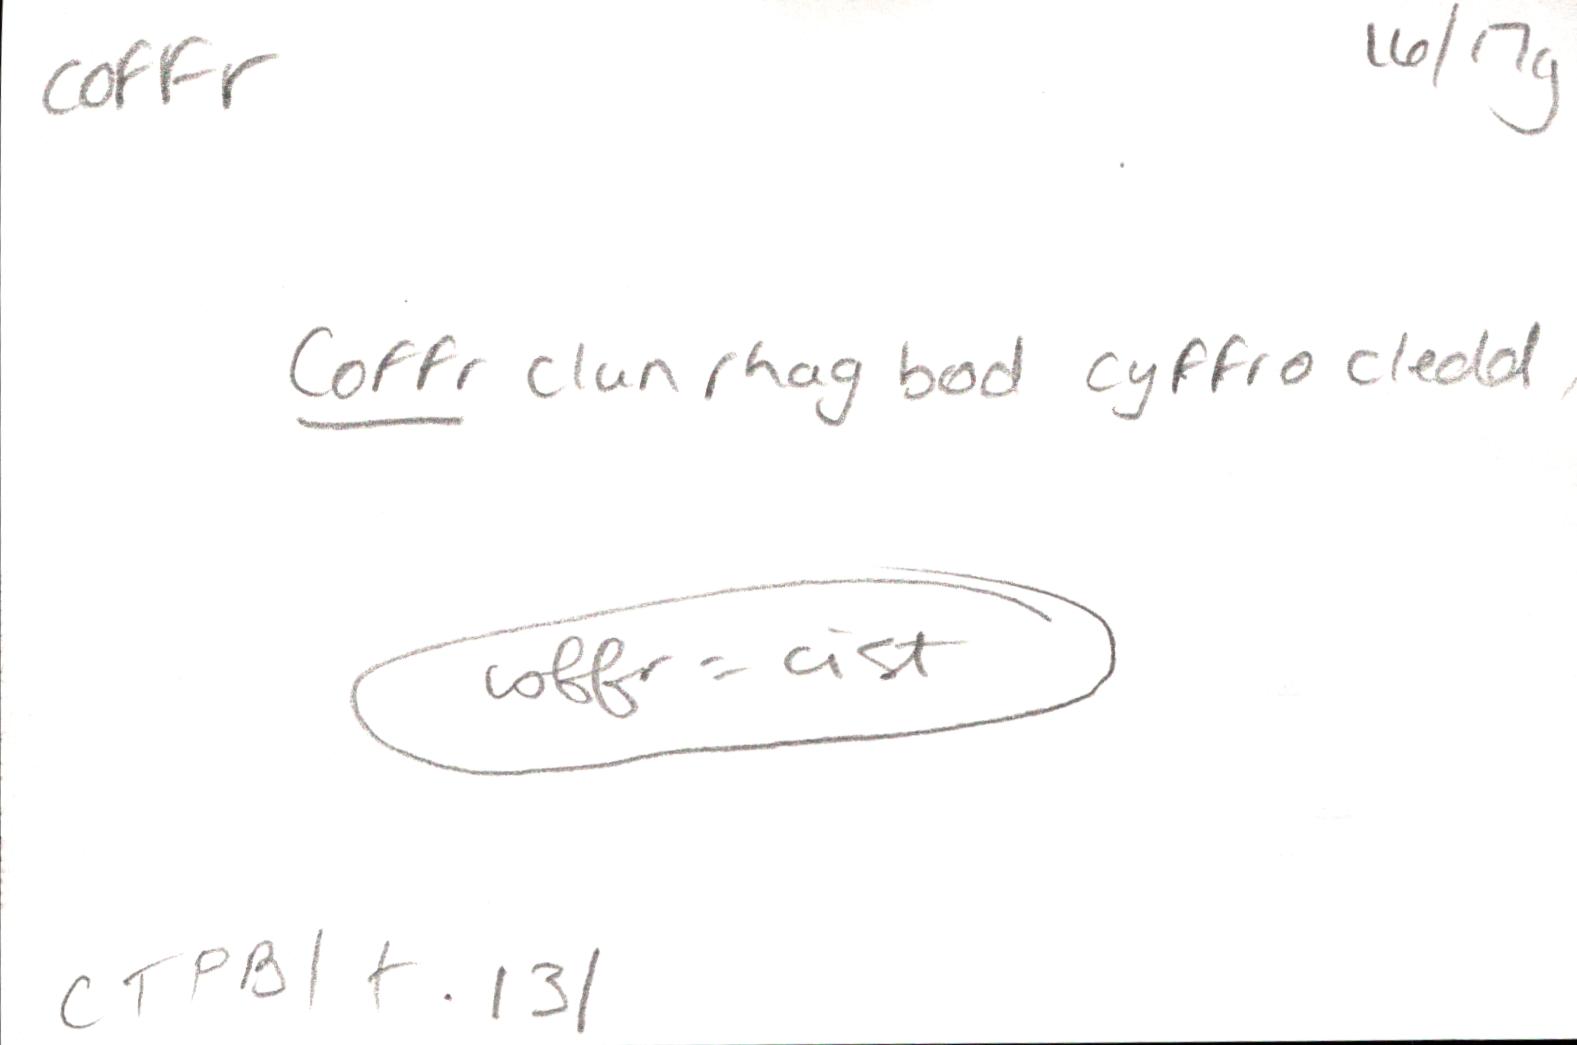 coffr 16/17g
Coffr clun rhag bod cyffro cledd,
coffr = cist
CTPB/ t. 131